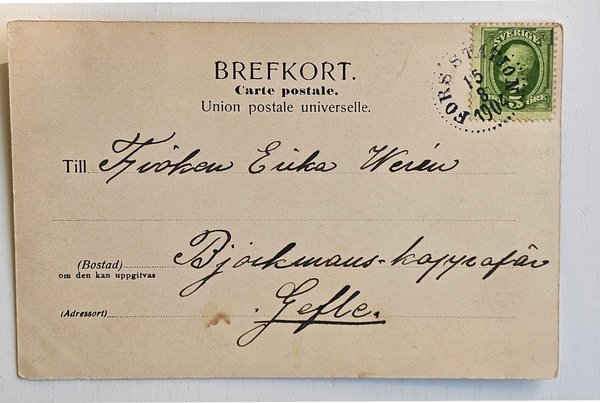 BREFKORT.
Carte postale.
Union postale universelle.
SVERIGE
5 ÖRE
FORS STATION
15
8
1904
Till Fröken Erika Werén
(Bostad) Björkmans-kappafär
om den kan uppgifvas
(Adressort) Gefle.